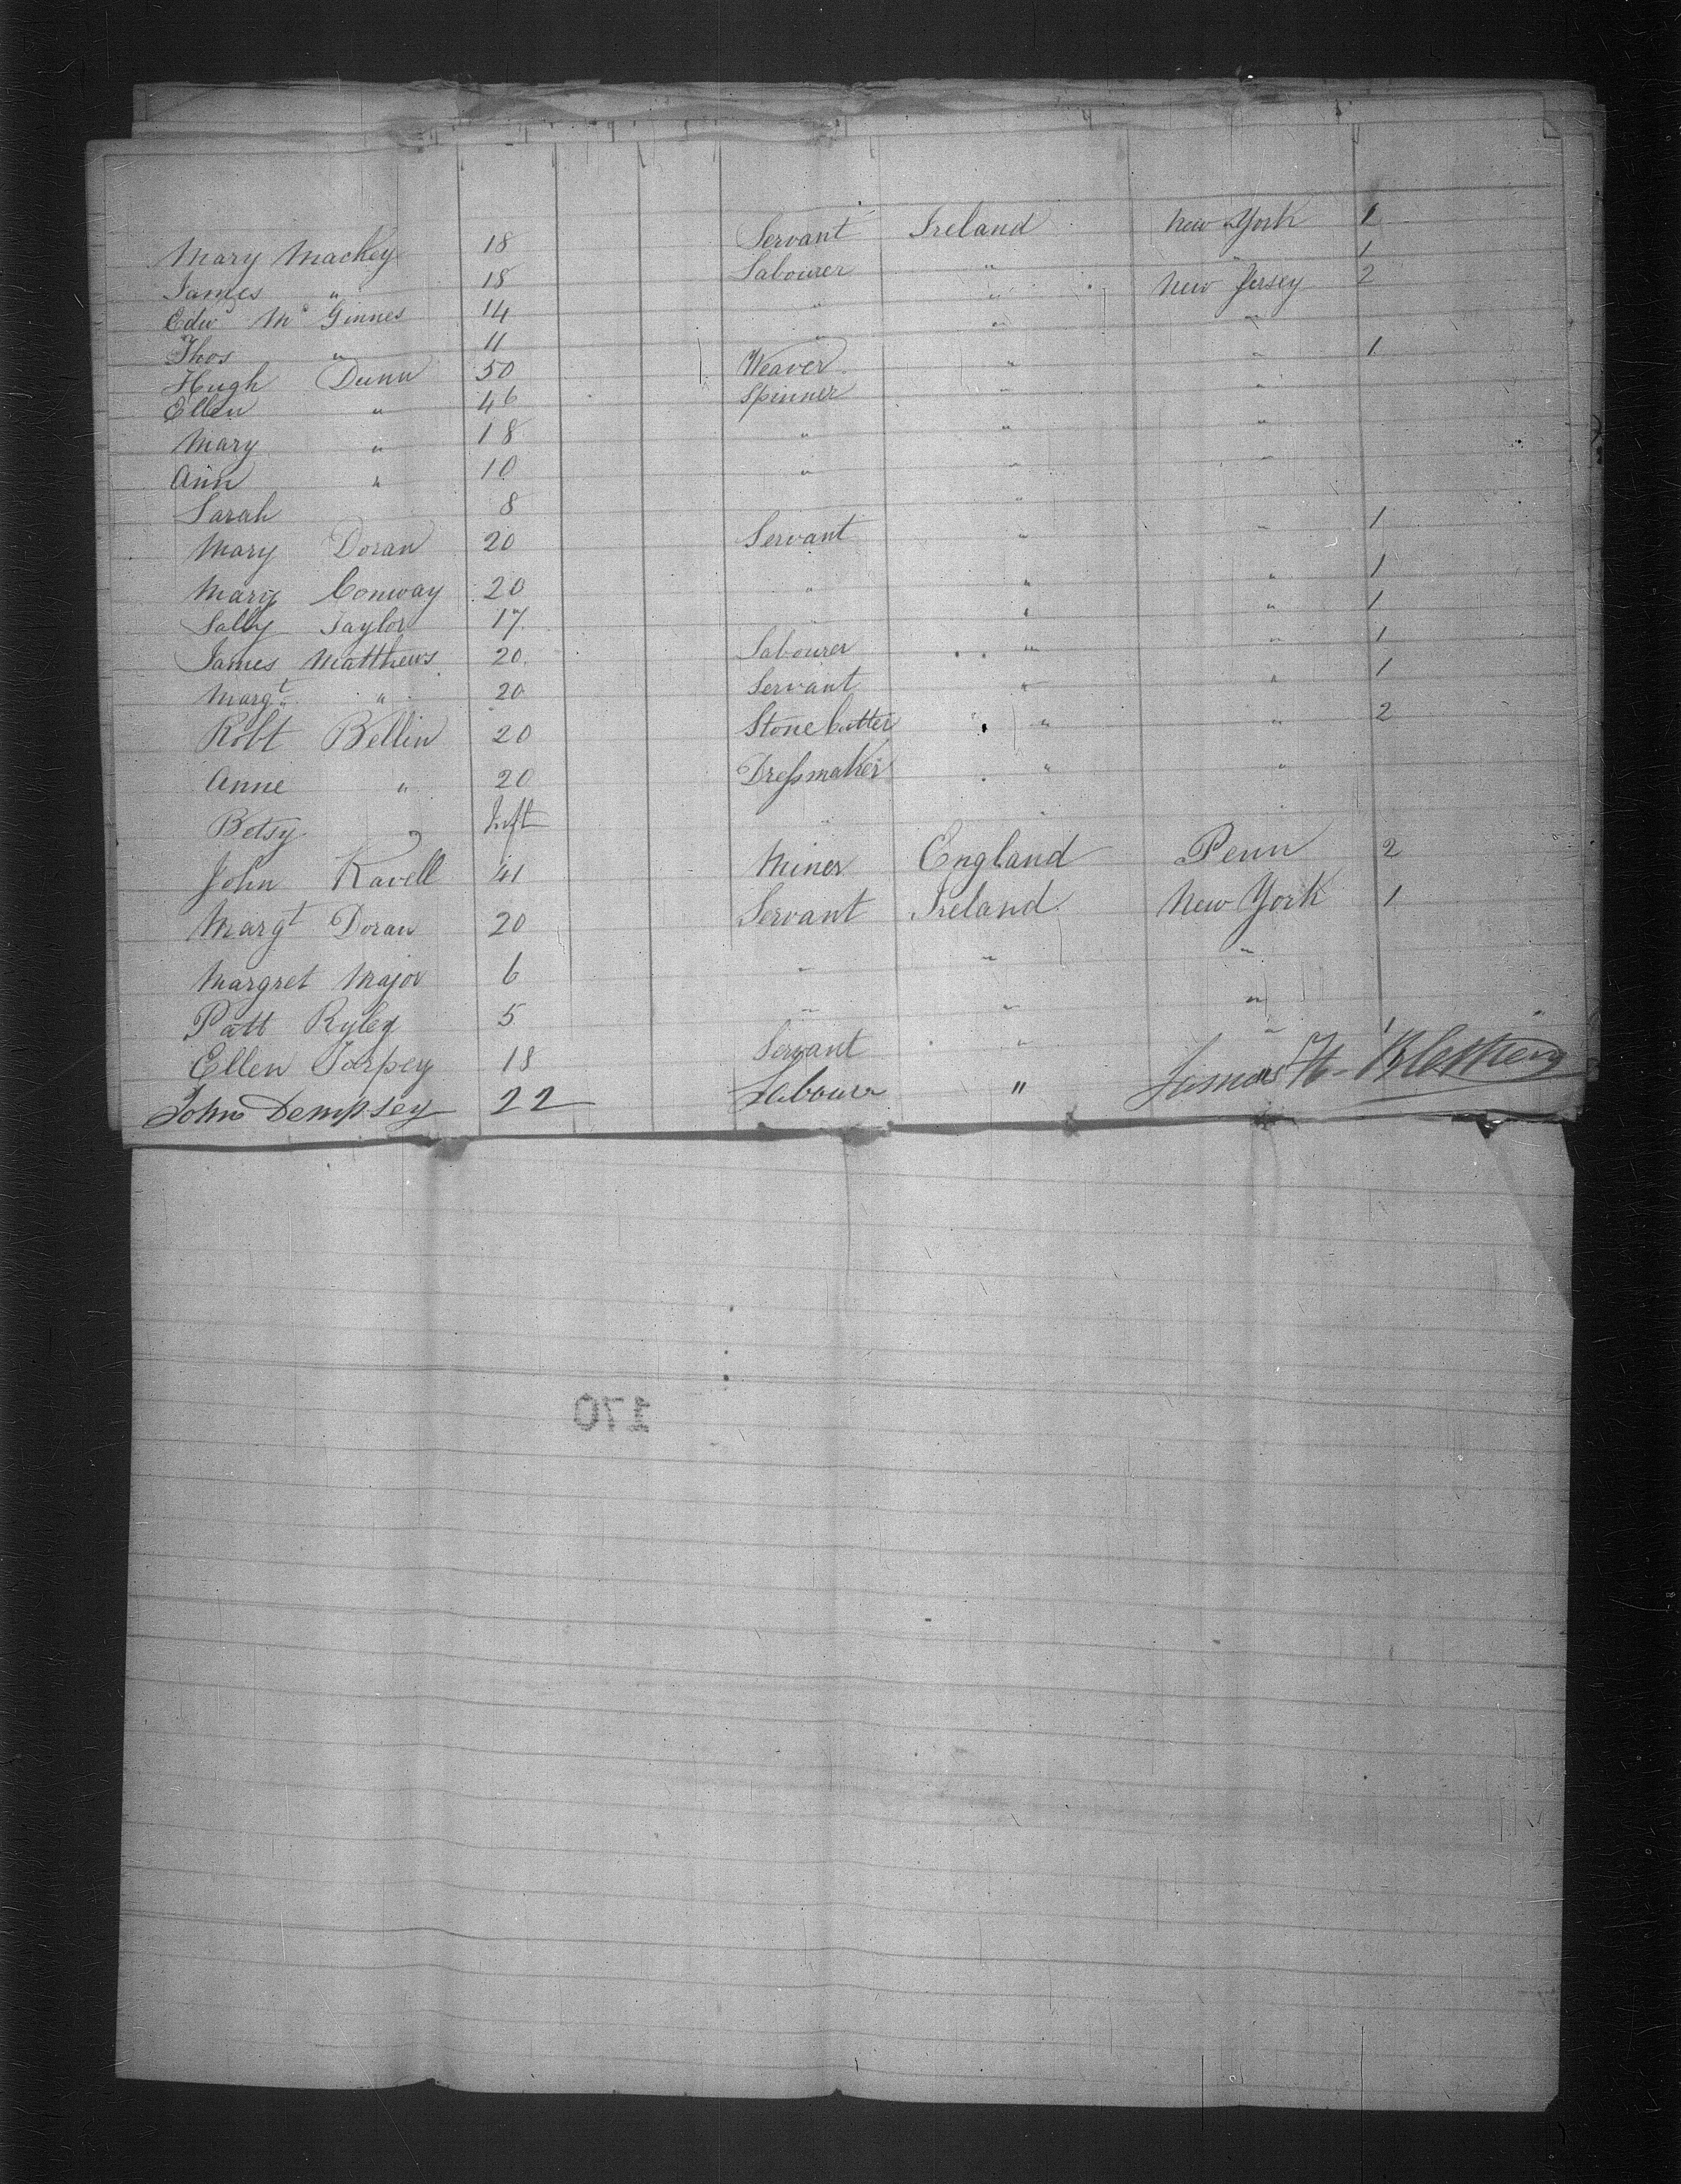 Mary Mackey 18 Servant Ireland New York 1
James " 18 Labourer " " 1
Edwd Mc Ginnes 14 " " New Jersey 2
Thos " 11 " " "
Hugh Dunn 50 Weaver " " 1
Ellen " 46 Spinner " "
Mary " 18 " " "
Ann " 10 " " "
Sarah 8 "
Mary Doran 20 Servant " " 1
Mary Conway 20 " " " 1
Sally Taylor 17 " " 1
James Matthews 20 Labourer " " 1
Margt " 20 Servant " " 1
Robt Bellin 20 Stone Cutter " " 2
Anne " 20 Dressmaker " "
Betsy " Inft "
John Kavell 41 Miner England Penn 2
Margt Doran 20 Servant Ireland New York 1
Margret Major 6 " " "
Patt Ryley 5 " " "
Ellen Torpey 18 Servant " " 1
John Dempsey 22 Labourer " "
James H.
170